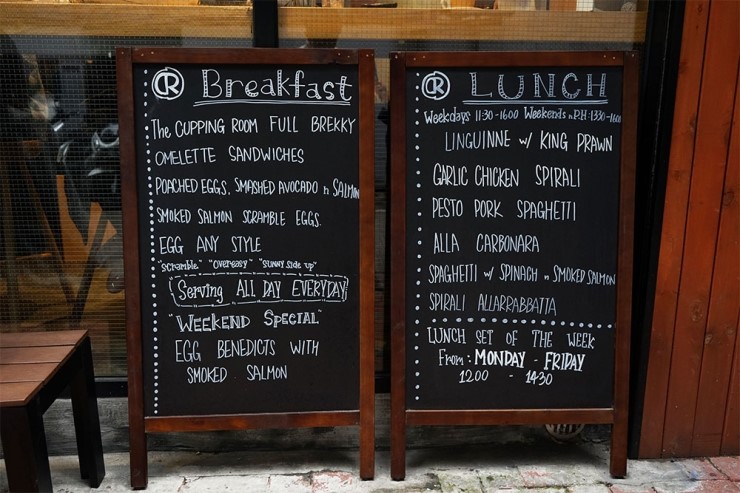 CR Breakfast
The CUPPING ROOM FULL BREKKY
OMELETTE SANDWICHES
POACHED EGGS, SMASHED AVOCADO n SALMON
SMOKED SALMON SCRAMBLE EGGS.
EGG ANY STYLE
"scramble" "overeasy" "sunny side up"
Serving ALL DAY EVERYDAY
"WEEKEND SPECIAL"
EGG BENEDICTS WITH
SMOKED SALMON
CR LUNCH
Weekdays 11:30-1600 Weekends n P.H-1330-1600
LINGUINNE w/ KING PRAWN
GARLIC CHICKEN SPIRALI
PESTO PORK SPAGHETTI
ALLA CARBONARA
SPAGHETTI w/ SPINACH n SMOKED SALMON
SPIRALI ALLARRABBATTA
LUNCH SET OF THE WEEK
From: MONDAY - FRIDAY
1200 - 1430